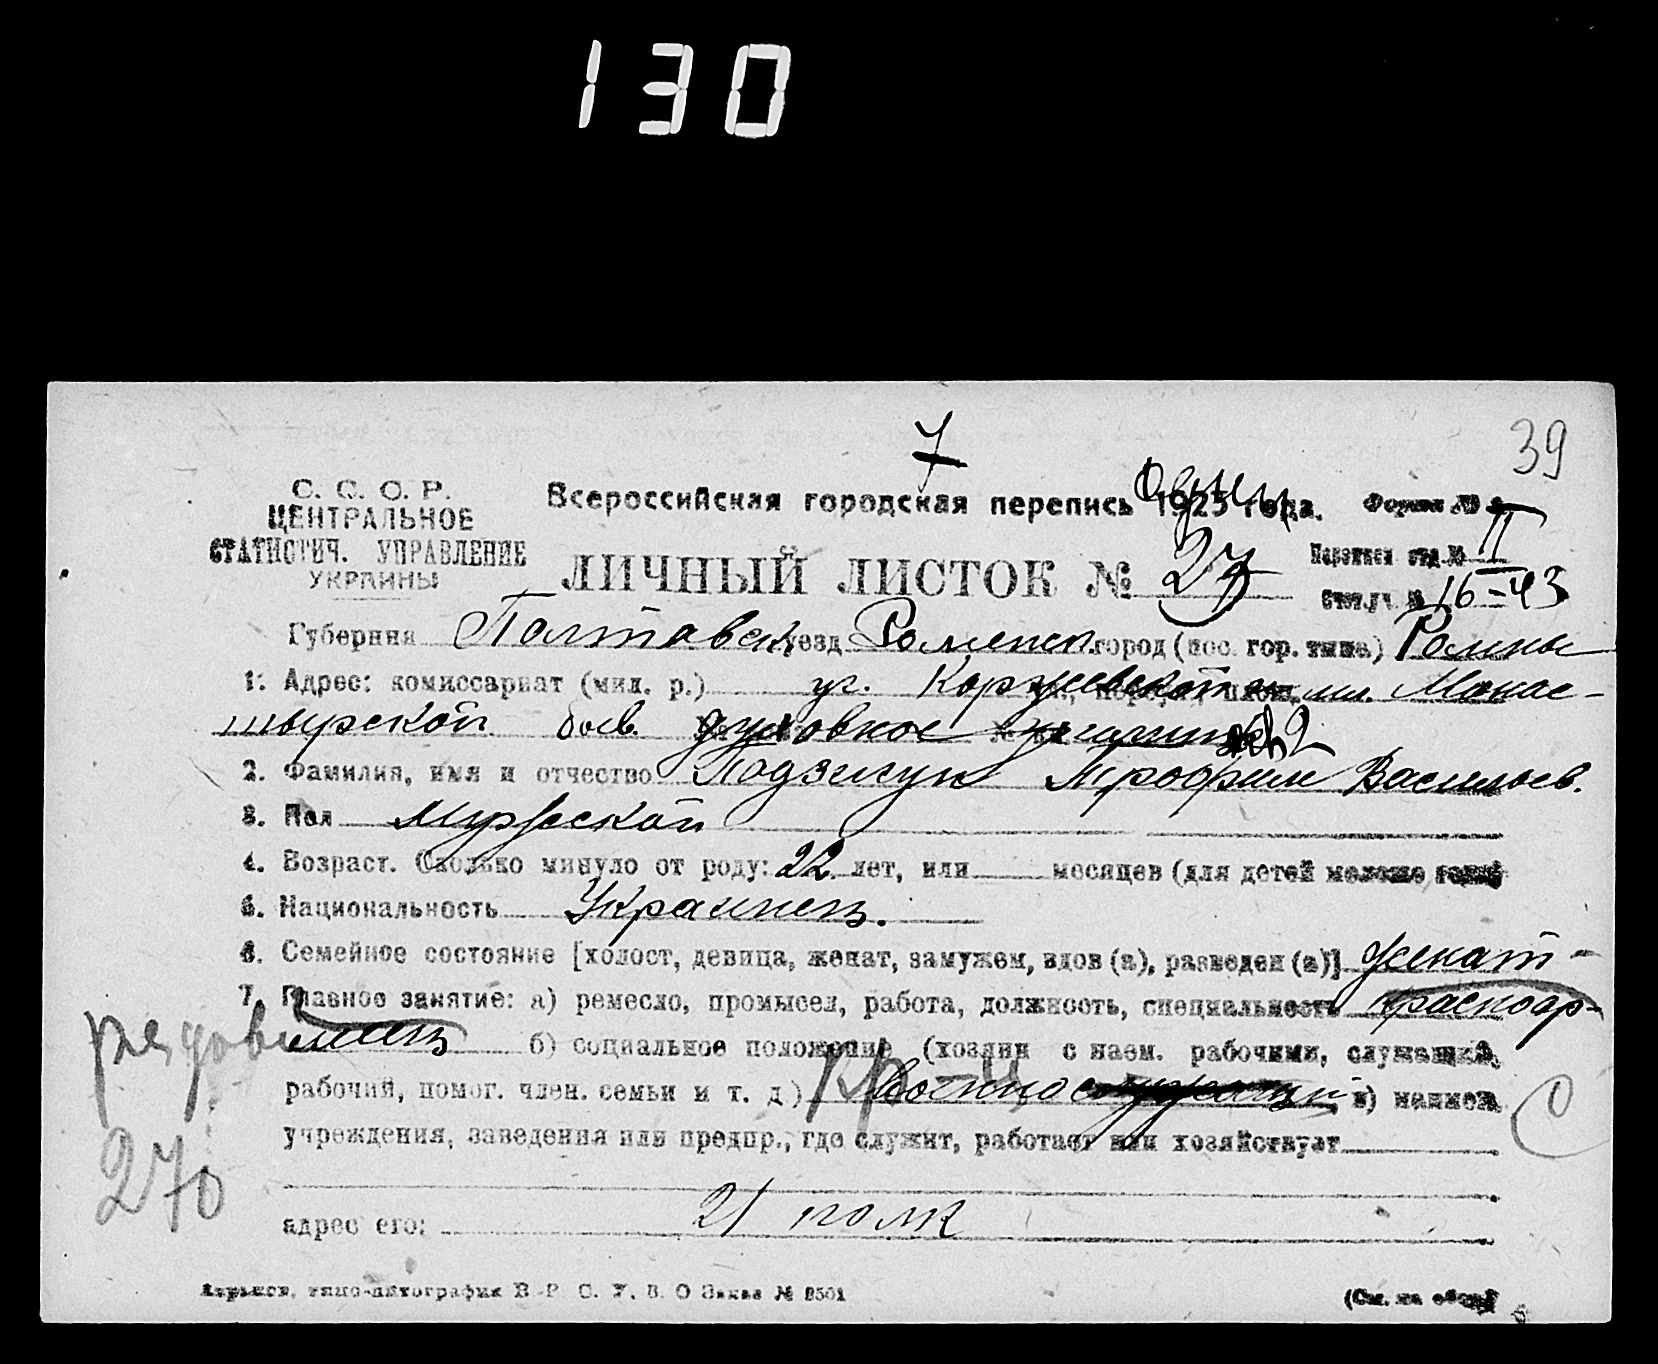 130
7
39
С. С. С. Р.
ЦЕНТРАЛЬНОЕ
СТАТИСТИЧ. УПРАВЛЕНИЕ
УКРАИНЫ
Всероссийская городская перепись 1923 года. Форма №
ЛИЧНЫЙ ЛИСТОК № 27
II
Счетн. уч. № 16-43
Губерния Полтавск уезд Роменск. город (пос. гор. типа) Ромны
1. Адрес: комиссариат (мил. р.) уг. Коржевской и Монас-
тырской бывш. духовное училище 2
2. Фамилия, имя и отчество Подзигун Трофим Васильев.
3. Пол Мужеской
4. Возраст. Сколько минуло от роду: 22 лет, или месяцев (для детей моложе года)
5. Национальность Украинец.
6. Семейное состояние [холост, девица, женат, замужем, вдов (а), разведен (а)] женат
7. Главное занятие: а) ремесло, промысел, работа, должность, специальность Красноар-
меец б) социальное положение (хозяин с наем. рабочими, служащий,
рядовой
рабочий, помог. член. семьи и т. д.) Военнослужащий в) название
учреждения, заведения или предпр., где служит, работает или хозяйствует
270
адрес его: 21 полк
Харьков, типо-литография В. Р. С. У. В. О Заказ № 8501
(См. на обор.)